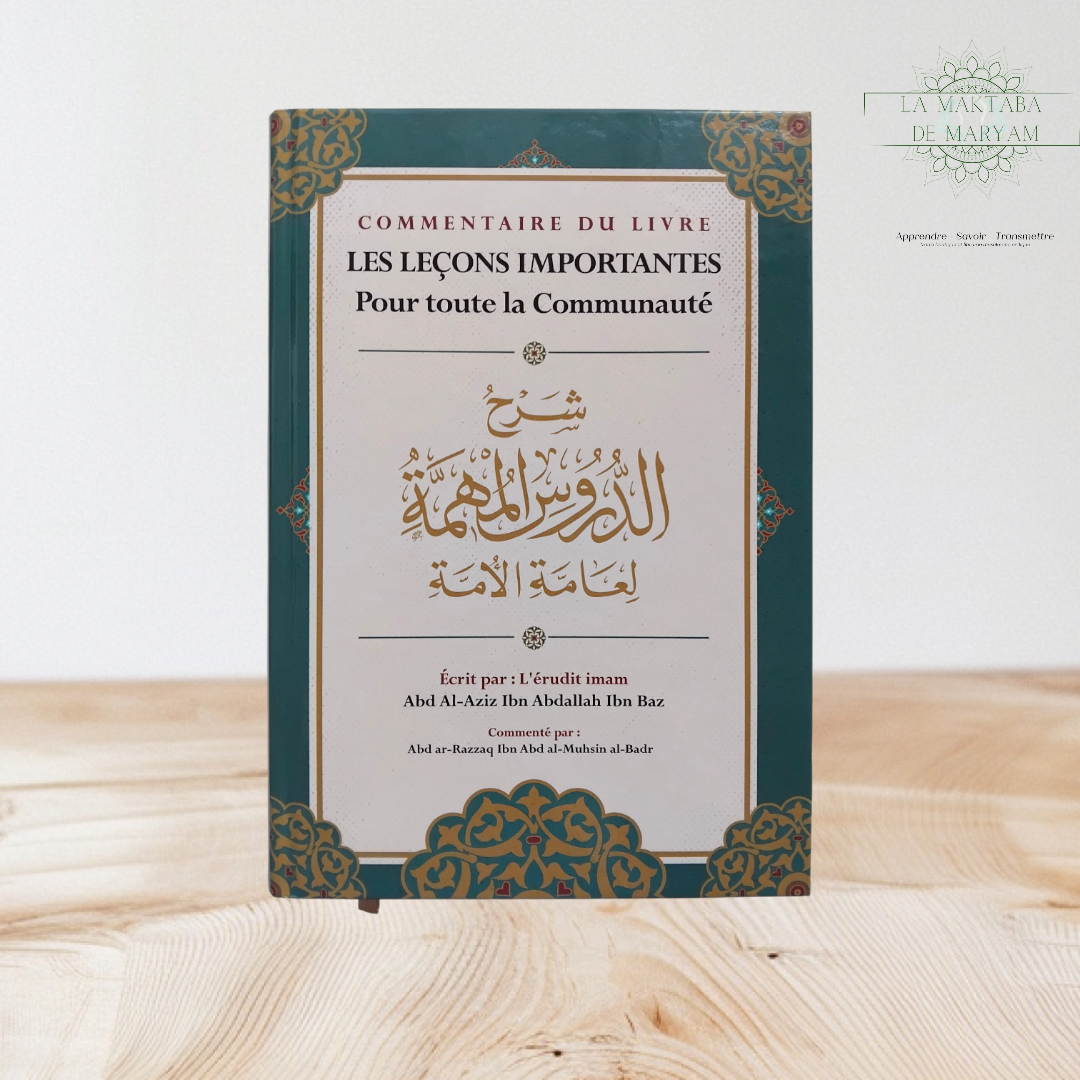 LA MAKTABA
DE MARYAM
Apprendre - Savoir - Transmettre
COMMENTAIRE DU LIVRE
LES LEÇONS IMPORTANTES
Pour toute la Communauté
شَرْحُ
الدُّرُوسِ الْمُهِمَّةِ
لِعَامَّةِ الْأُمَّةِ
Écrit par : L'érudit imam
Abd Al-Aziz Ibn Abdallah Ibn Baz
Commenté par :
Abd ar-Razzaq Ibn Abd al-Muhsin al-Badr